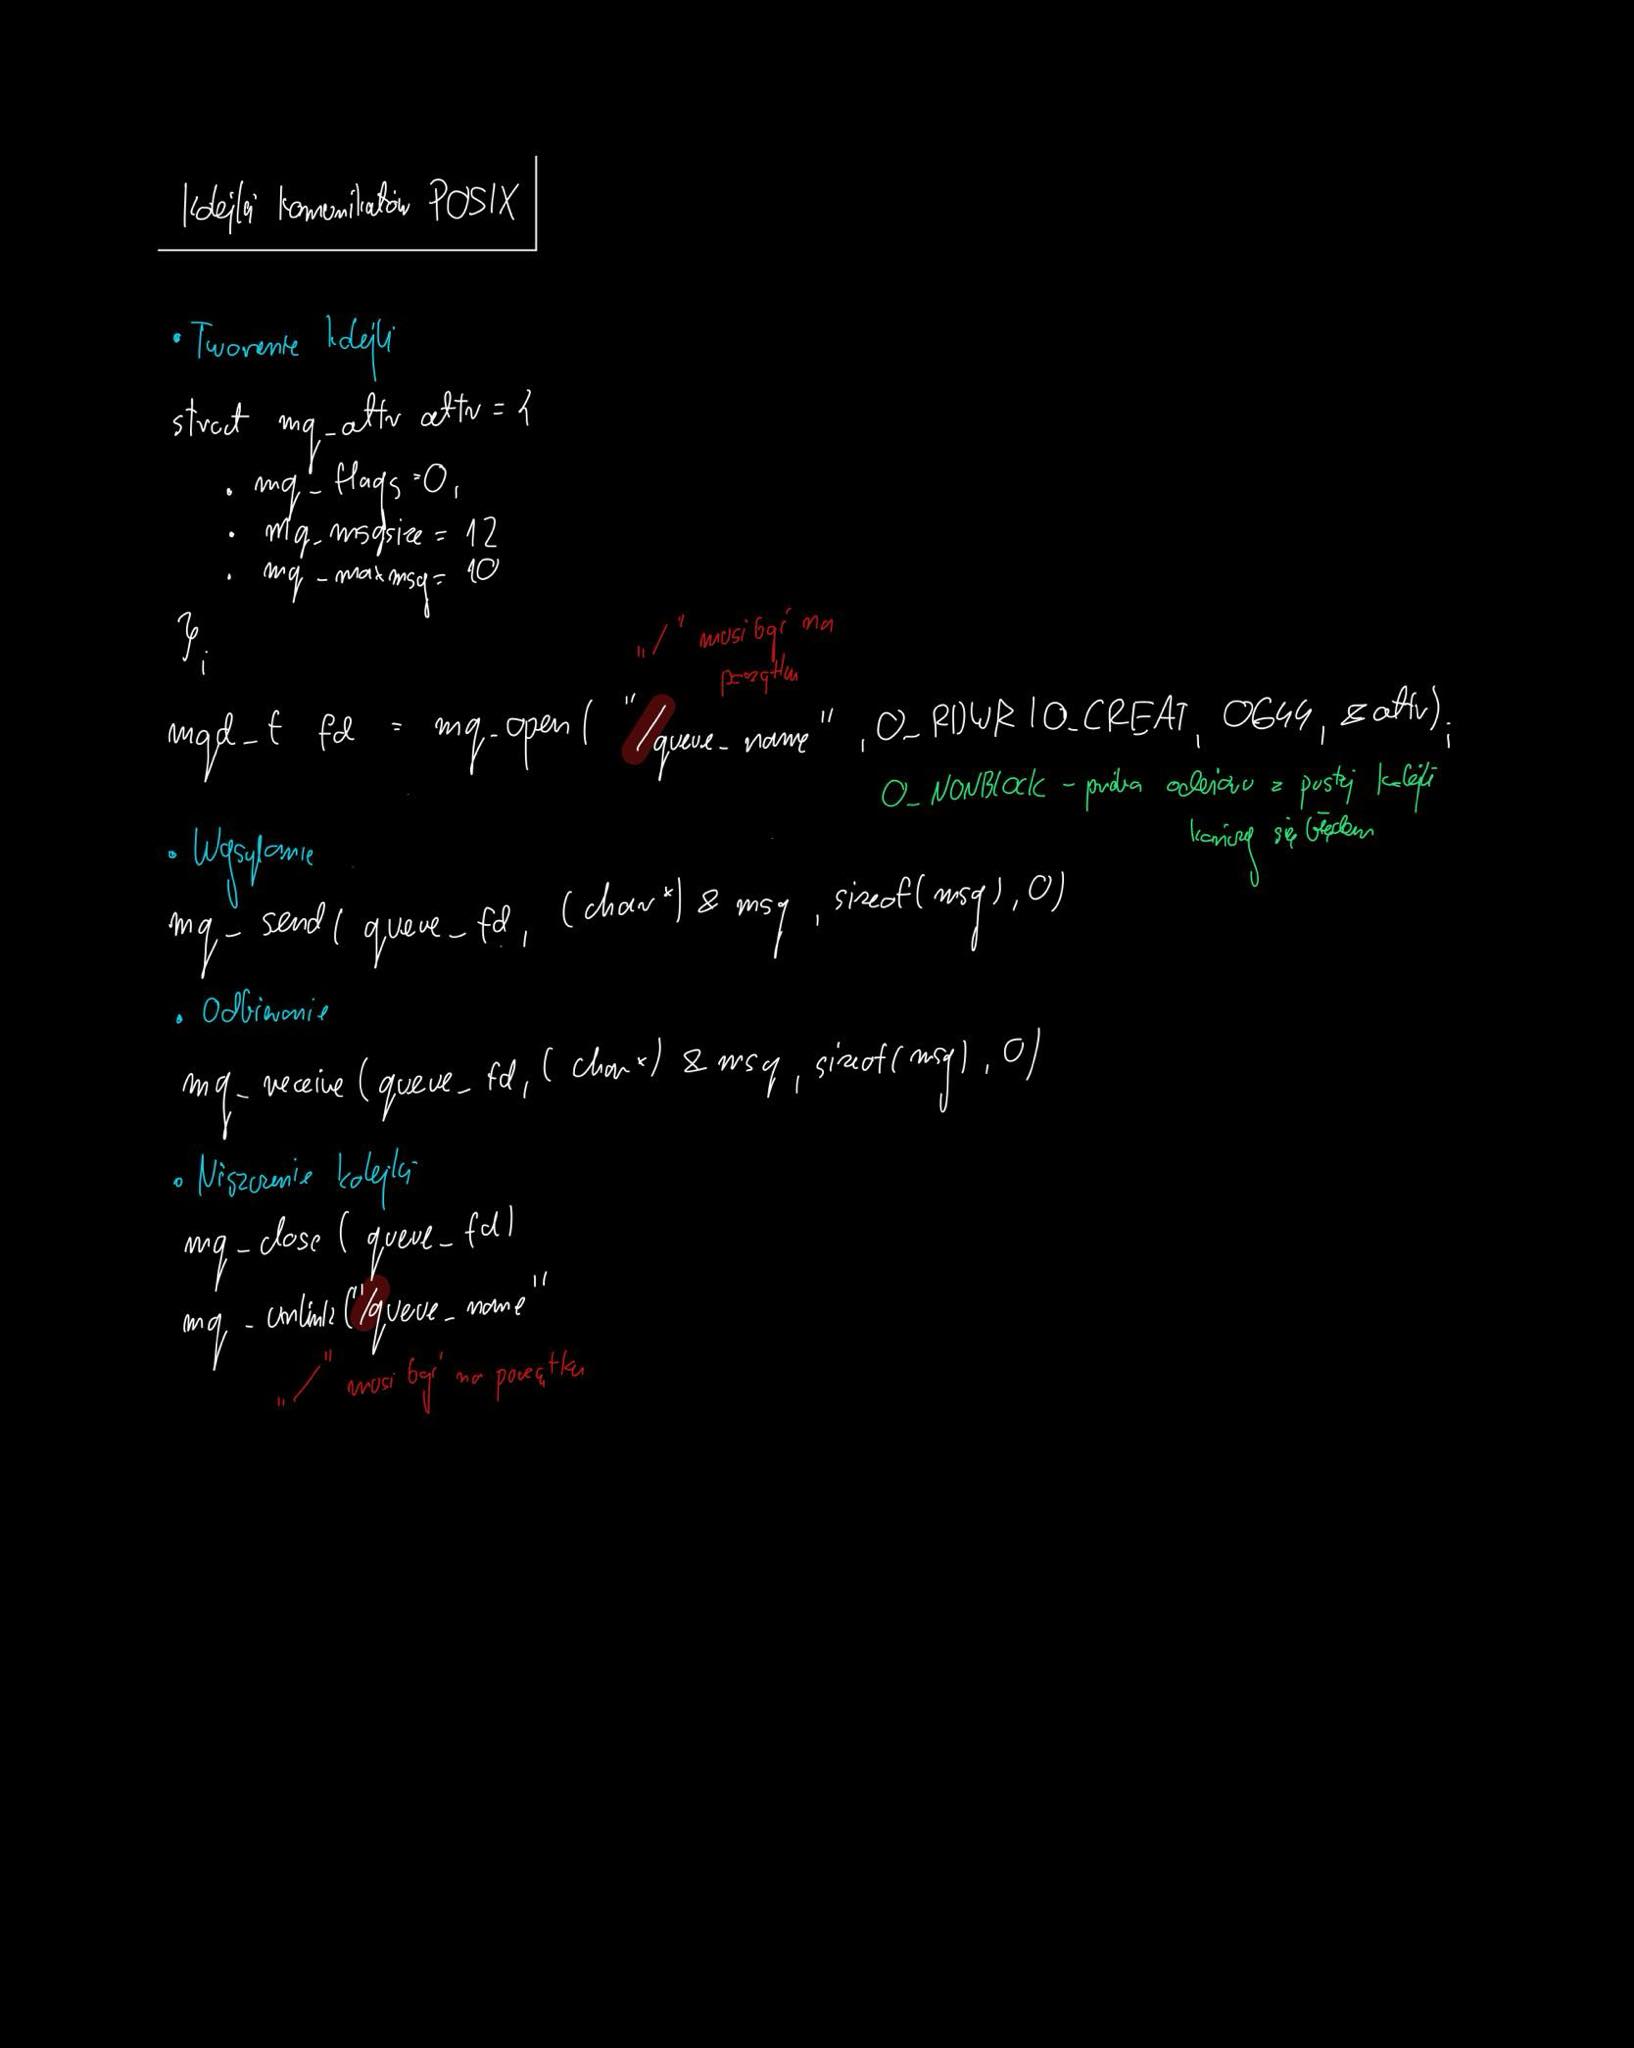 Kolejki komunikatów POSIX
• Tworzenie kolejki
struct mq_attr attr = {
. mq_flags = 0,
. mq_msgsize = 12
. mq_maxmsg = 10
};
„/" musi być na
początku
mqd_t fd = mq_open( "/queue_name" , O_RDWR | O_CREAT, 0644, &attr);
O_NONBLOCK - próba odczytu z pustej kolejki
kończy się błędem
• Wysyłanie
mq_send( queue_fd, (char*) & msg, sizeof(msg), 0)
• Odbieranie
mq_receive (queue_fd, (char*) & msg, sizeof(msg), 0)
• Niszczenie kolejki
mq_close ( queue_fd)
mq_unlink ("/queue_name"
„/" musi być na początku